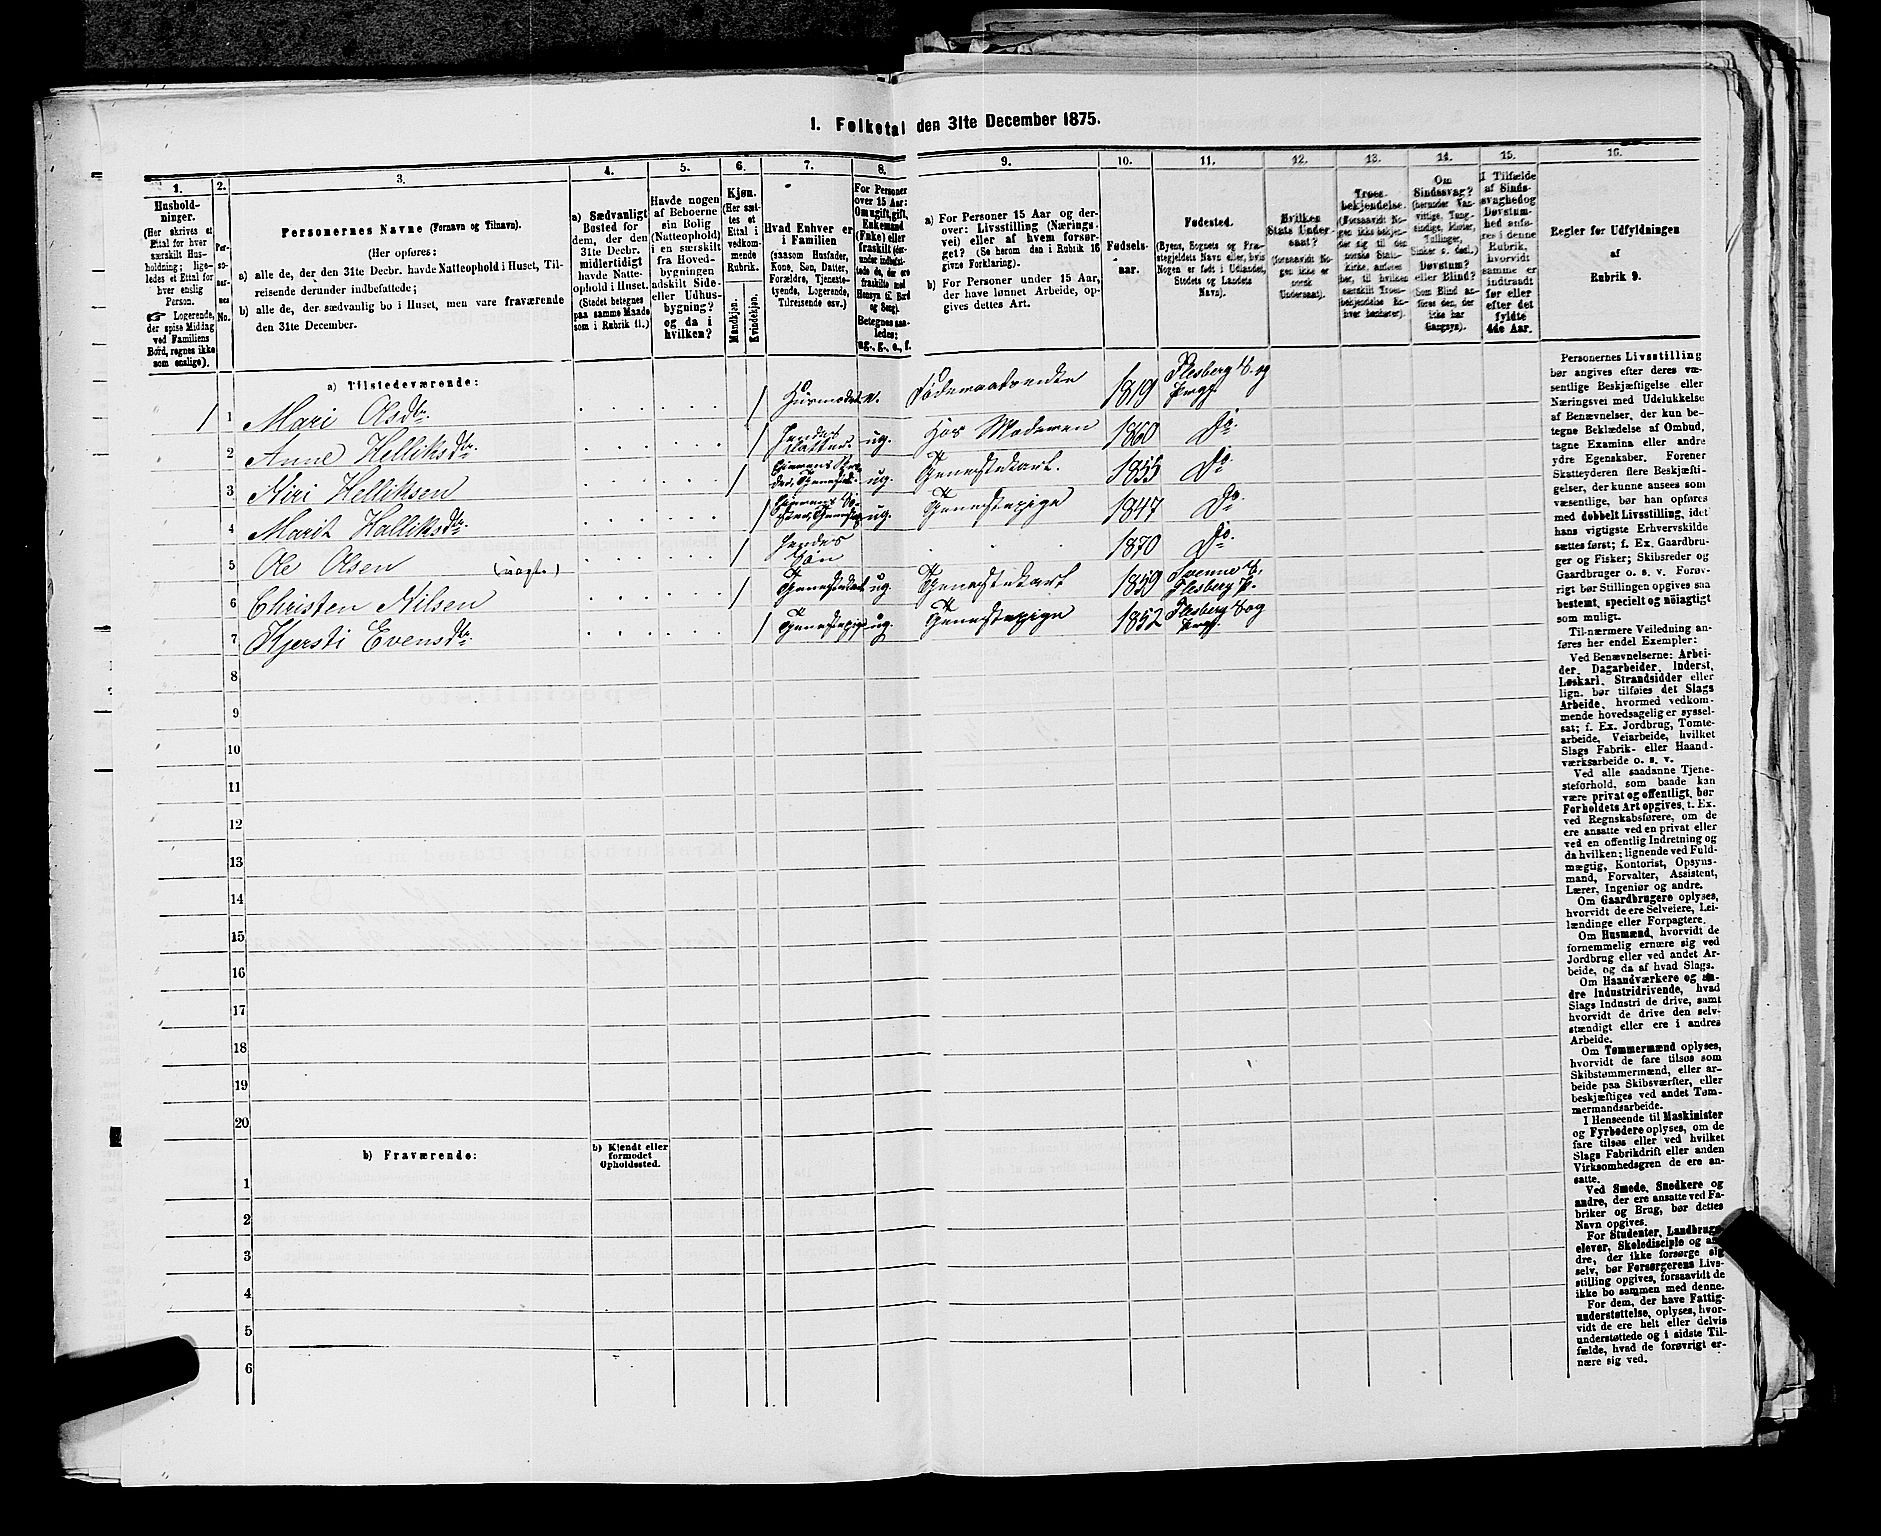 1. Folketal den 31te December 1875.
1.
2.
3.
4.
5.
6.
7.
8.
9.
10.
11.
12.
13.
14.
15.
16.
Hushold-
ninger.
(Her skrives et
Ettal for hver
særskilt Hus-
holdning; lige-
ledes et Ettal for
hver enslig
Person.
☞ Logerende,
der spise Middag
ved Familiens
Bord, regnes ikke
som enslige).
Per-
so-
ner-
nes
No.
Personernes Navne (Fornavn og Tilnavn).
(Her opføres:
a) alle de, der den 31te Decbr. havde Natteophold i Huset, Til-
reisende derunder indbefattede;
b) alle de, der sædvanlig bo i Huset, men vare fraværende
den 31te December.
a) Sædvanligt
Bosted for
dem, der den
31te Decbr.
midlertidigt
havde Natte-
ophold i Huset.
(Stedet betegnes
paa samme Maade
som i Rubrik 11.)
Havde nogen
af Beboerne
sin Bolig
(Natteophold)
i en særskilt
fra Hoved-
bygningen
adskilt Side-
eller Udhus-
bygning?
og da i
hvilken?
Kjøn.
(Her sæt-
tes et
Ettal i
vedkom-
mende
Rubrik.
Mandkjøn.
Kvindekjøn.
Hvad Enhver er
i Familien
(saasom Husfader,
Kone, Søn, Datter,
Forældre, Tjeneste-
tyende, Logerende,
Tilreisende osv.)
For Personer
over 15 Aar:
Om ugift, gift,
Enkemand
(Enke) eller
fraskilt
under indbefat-
tede de, der ere
fraskilte med
Hensyn til Bord
og Seng).
Betegnes saa-
ledes:
ug., g., e., f.
a) For Personer 15 Aar og der-
over: Livsstilling (Nærings-
vei) eller af hvem forsør-
get? (Se herom den i Rubrik 16
givne Forklaring).
b) For Personer under 15 Aar,
der have lønnet Arbeide, op-
gives dettes Art.
Fødsels-
aar.
Fødested.
(Byens, Sognets og Præ-
stegjeldets Navn eller, hvis
Nogen er født i Udlandet,
Stedets og Landets
Navn).
Hvilken
Stats Under-
saat?
(forsaavidt No-
gen ikke er
norsk
Undersaat).
Troes-
bekjendelse.
(Forsaavidt No-
gen ikke bekjen-
der sig til den
norske Stats-
kirke, anføres
her, til hvilken
særskilt Troes-
bekjendelse En-
hver henhører).
Om
Sindssvag?
(herunder Van-
vittige, Tung-
sindige, Idioter,
Tullinger,
Sinker o. desl.)
Døvstum?
eller Blind?
(Som Blind an-
føres den, der
ikke har
Gangsyn).
I Tilfælde
af Sinds-
svaghed og
Døvstum-
hed anfø-
res i denne
Rubrik,
hvorvidt
samme er
indtraadt
før eller
efter det
fyldte
4de Aar.
Regler for Udfyldningen
af
Rubrik 9.
a) Tilstedeværende:
1 1 Mari Olsdtr. 1 Husmoder e. Føderaadsenke 1819 Flesberg S. og Prgj.
2 Anne Helliksdtr. 1 hendes Datter ug. Hos Moderen 1860 Do.
3 Niri Helliksen 1 ug. Tjenestekarl. 1855 Do
4 Marit Halliksdtr. 1 ug. Tjenestepige 1847 Do
5 Ole Olsen (uægte) 1 hendes Søn 1870 Do.
6 Christen Nilsen 1 Tjenestekarl ug. Tjenestekarl 1859 Svenne S., Flesberg P.
7 Kjersti Evensdtr 1 Tjenestepige ug. Tjenestepige 1852 Flesberg S. og Prgj.
8
9
10
11
12
13
14
15
16
17
18
19
20
b) Fraværende:
b) Kjendt eller
formodet
Opholdssted.
1
2
3
4
5
6
Personernes Livsstilling
bør angives efter deres væ-
sentlige Beskjæftigelse eller
Næringsvei med Udelukkelse
af Benævnelser, der kun be-
tegne Beklædelse af Ombud,
tagne Examina eller andre
ydre Egenskaber. Forener
Skatteyderen flere Beskjæfti-
gelser, der kunne ansees som
væsentlige, bør han opføres
med dobbelt Livsstilling, idet
hans vigtigste Erhvervskilde
sættes først; f. Ex. Gaardbru-
ger og Fisker; Skibsreder og
Gaardbruger o. s. v. Forøv-
rigt bør Stillingen opgives saa
bestemt, specielt og nøiagtigt
som muligt.
Til nærmere Veiledning an-
føres her endel Exempler:
Ved Benævnelserne: Arbei-
der, Dagarbeider, Inderst,
Løskarl, Strandsidder eller
lign. bør tilføies det Slags
Arbeide, hvormed vedkom-
mende hovedsagelig er syssel-
sat; f. Ex. Jordbrug, Tømte-
arbeide, Veiarbeide, hvilket
Slags Fabrik- eller Haand-
værksarbeide o. s. v.
Ved alle saadanne Tjene-
steforhold, som baade kan
være privat og offentligt, bør
Forholdets Art opgives, t. Ex.
ved Regnskabsførere, om de
ere ansatte ved en privat eller
ved en offentlig Indretning og
da hvilken; lignende ved Fuld-
mægtig, Kontorist, Opsyns-
mand, Forvalter, Assistent,
Lærer, Ingeniør og andre.
Om Gaardbrugere oplyses,
hvorvidt de ere Selveiere, Lei-
lændinge eller Forpagtere.
Om Husmænd, hvorvidt de
fornemmelig ernære sig ved
Jordbrug eller ved andet Ar-
beide, og da af hvad Slags.
Om Haandværkere og an-
dre Industridrivende, hvad
Slags Industri de drive, samt
hvorvidt de drive den selv-
stændigt eller ere i andres
Arbeide.
Om Tømmermænd oplyses,
hvorvidt de fare tilsøs som
Skibstømmermænd, eller ar-
beide paa Skibsværfter, eller
beskjæftiges ved andet Tøm-
mermandsarbeide.
I Henseende til Maskinister
og Fyrbødere oplyses, om de
fare tilsøs eller ved hvilket
Slags Fabrikdrift eller anden
Virksomhedsgren de ere an-
satte.
Ved Smede, Snedkere og
andre, der ere ansatte ved Fa-
briker og Brug, bør dettes
Navn opgives.
For Studenter, Landbrugs-
elever, Skoledisciple og an-
dre, der ikke forsørge sig
selv, bør Forsørgerens Livs-
stilling opgives, forsaavidt de
ikke bo sammen med denne.
For dem, der have Fattig-
understøttelse, oplyses, hvor-
vidt de ere helt eller delvis
understøttede og i sidste Til-
fælde, hvad de forøvrigt er-
nære sig ved.